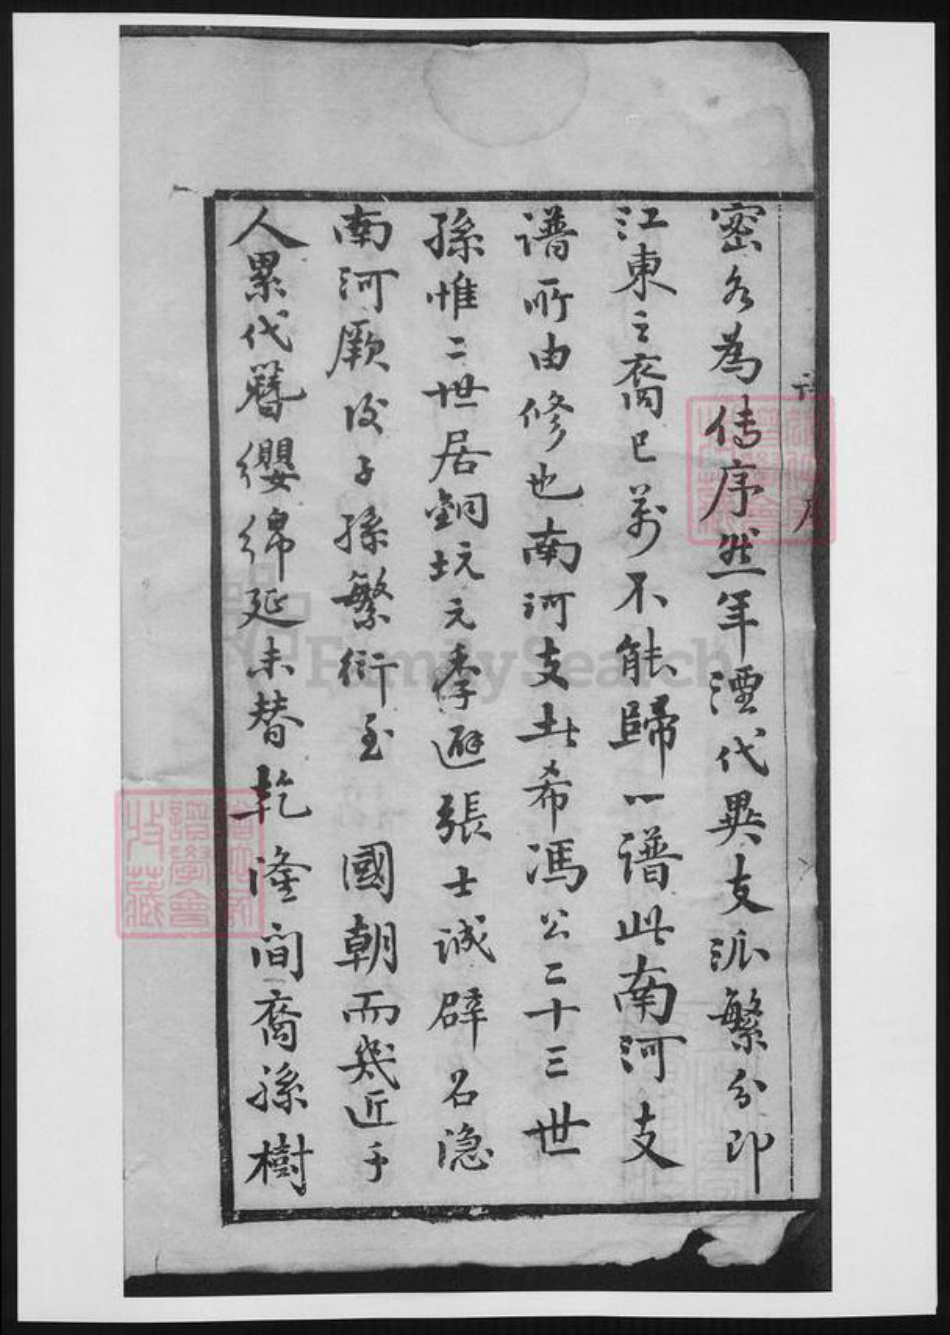 密各為傳序然年湮代異支派繁分即
江東之裔已萬不能歸一譜此南河支
譜所由修也南河支士希馮公二十三世
孫惟二世居銅坑元季避張士誠辟召隐
南河厥後子孫繁衍至 國朝而幾近千
人累代簪纓綿延未替乾隆間裔孫樹
FamilySearch